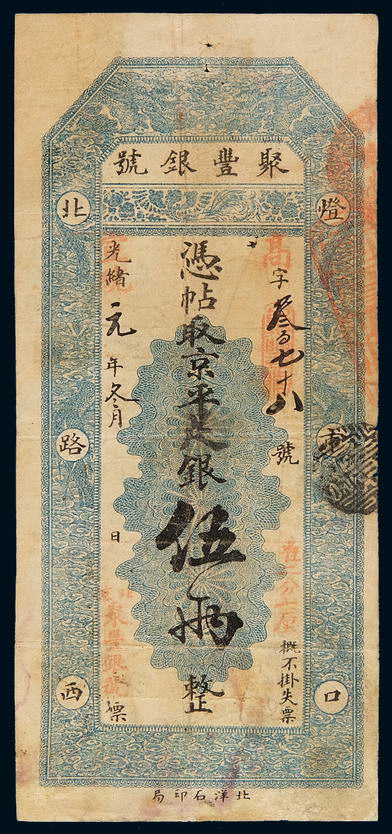 聚豐銀號
燈
口
北路西
字叁百七十八號
概不掛失票
憑帖取京平足銀伍兩整
光緒元年冬月 日
聚豐銀號
票
北洋石印局